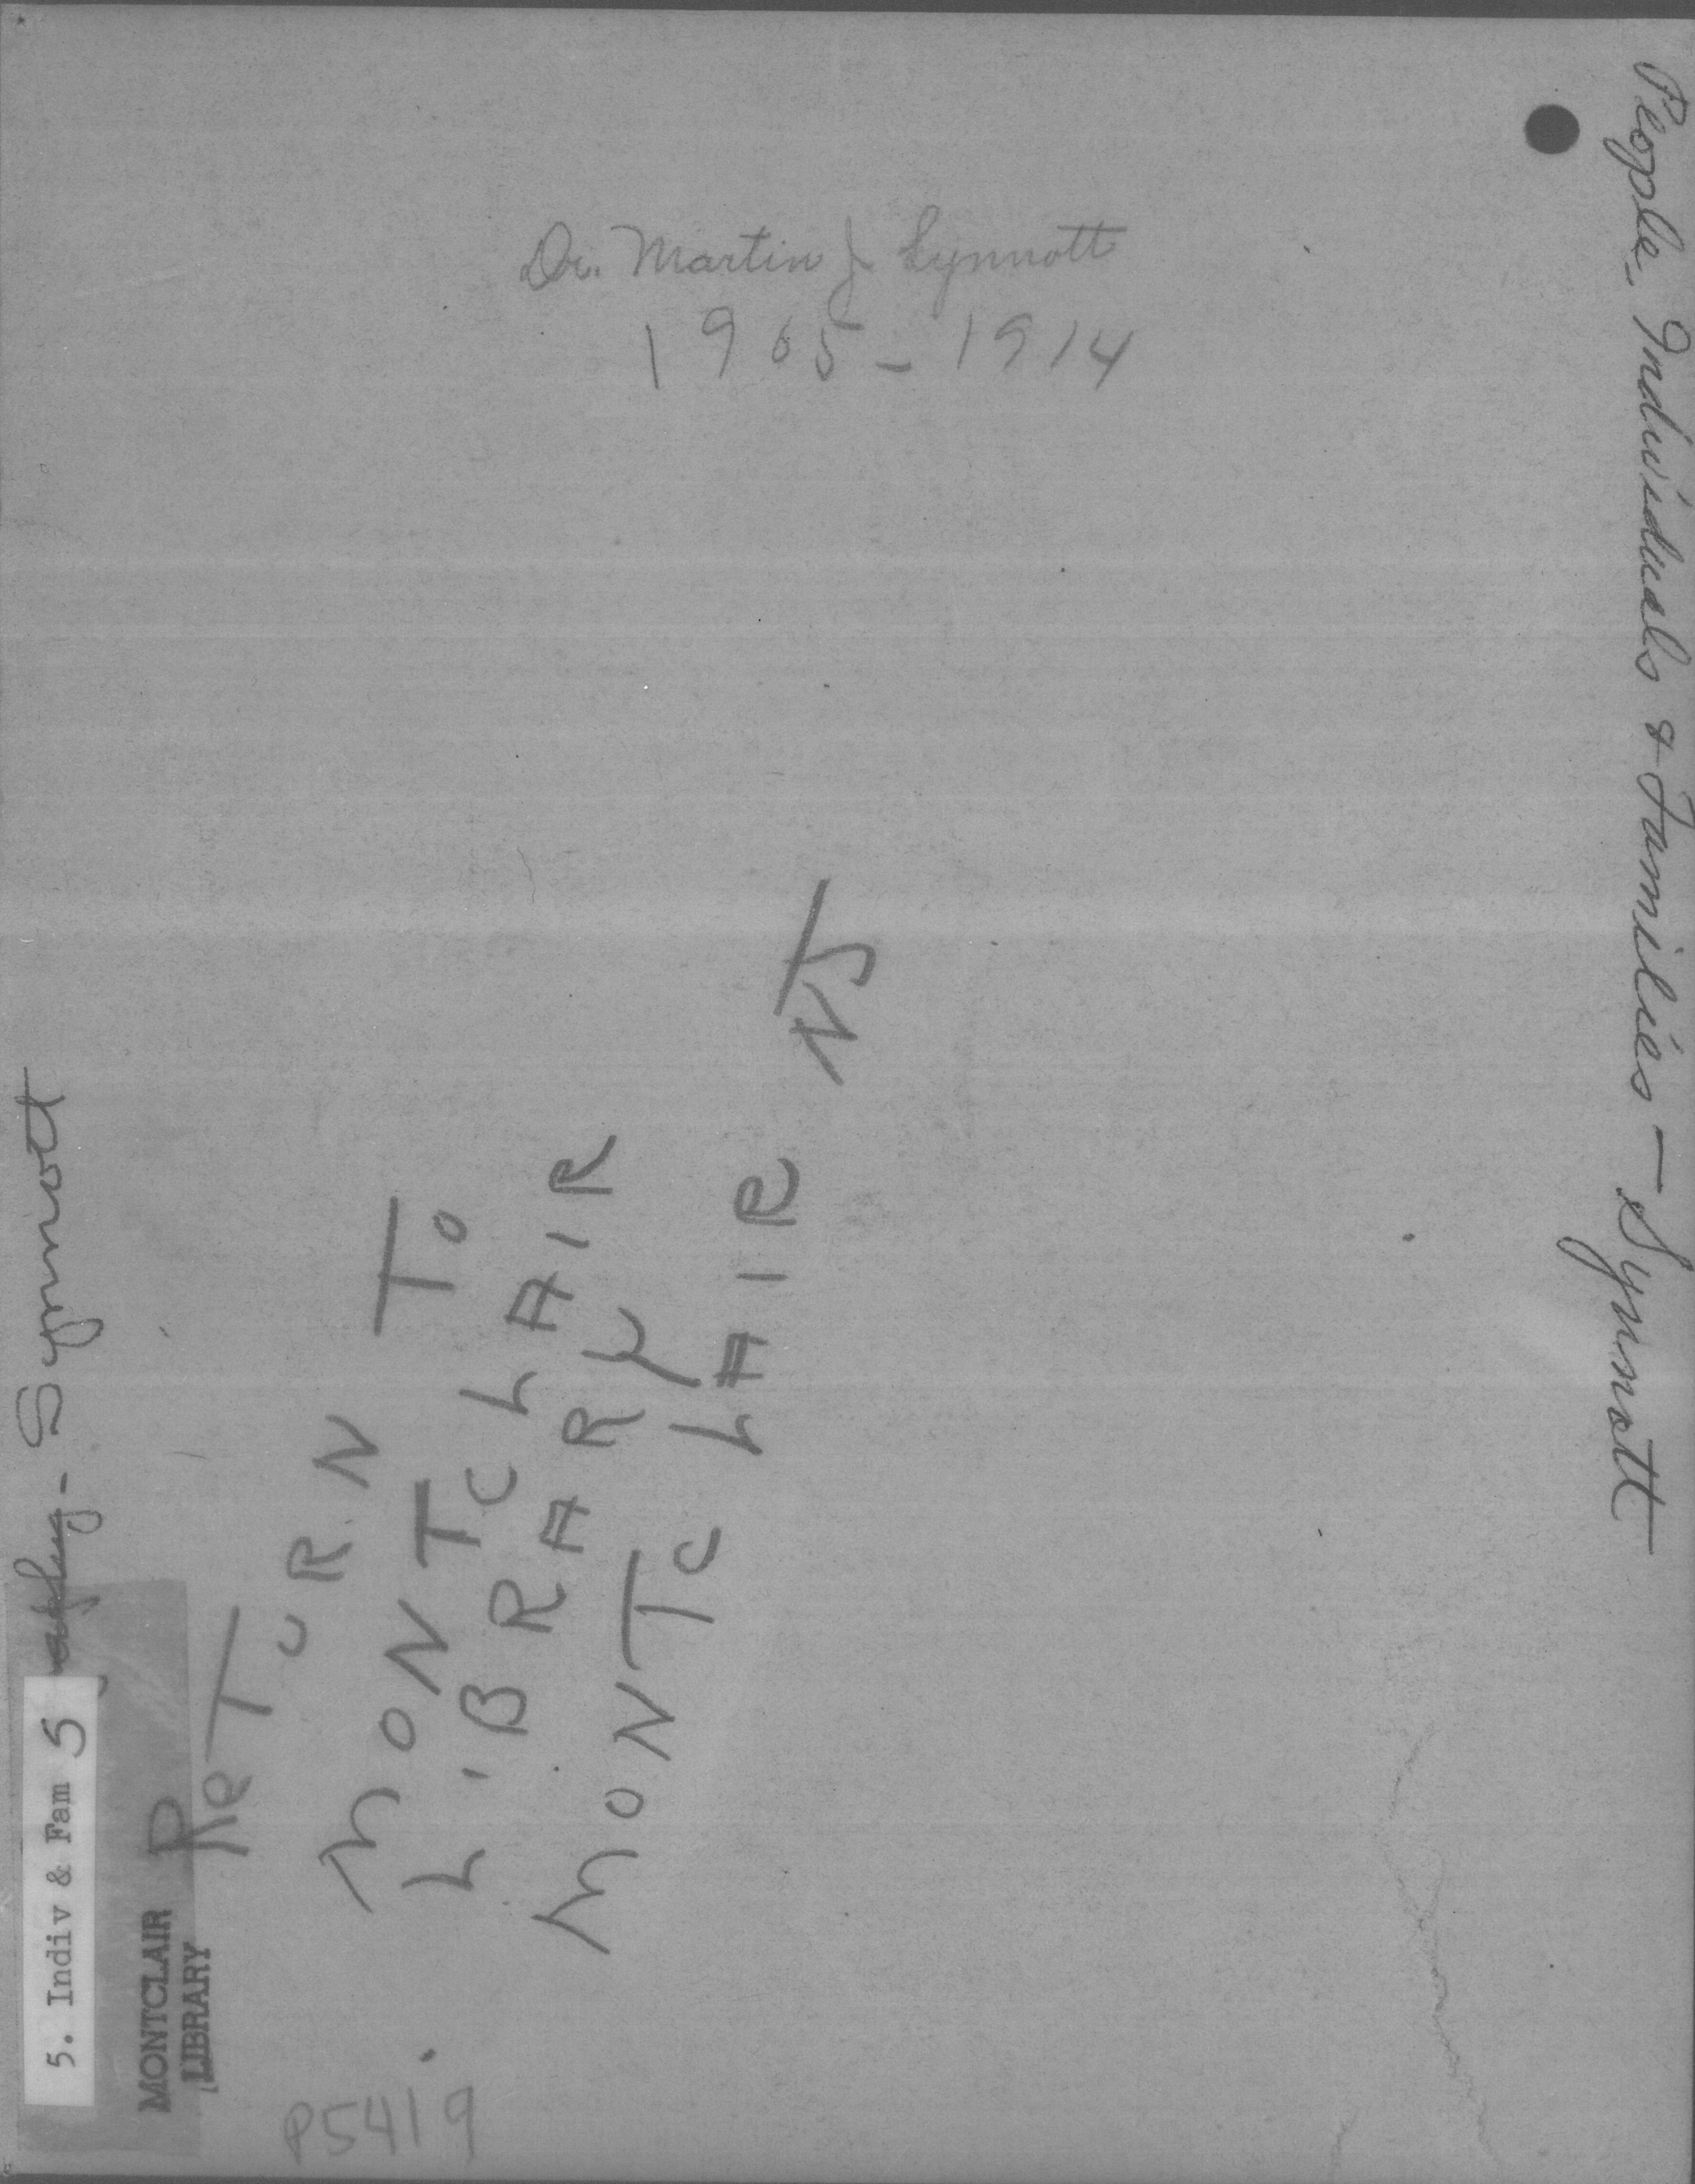 Dr. Martin J Synnott
1905-1914
People, Individuals & Families - Synnott
- Synnott
5. Indiv & Fam S
MONTCLAIR
LIBRARY
ReTURN To
MONTCLAIR
LIBRARY
MONTCLAIR NJ
P5419